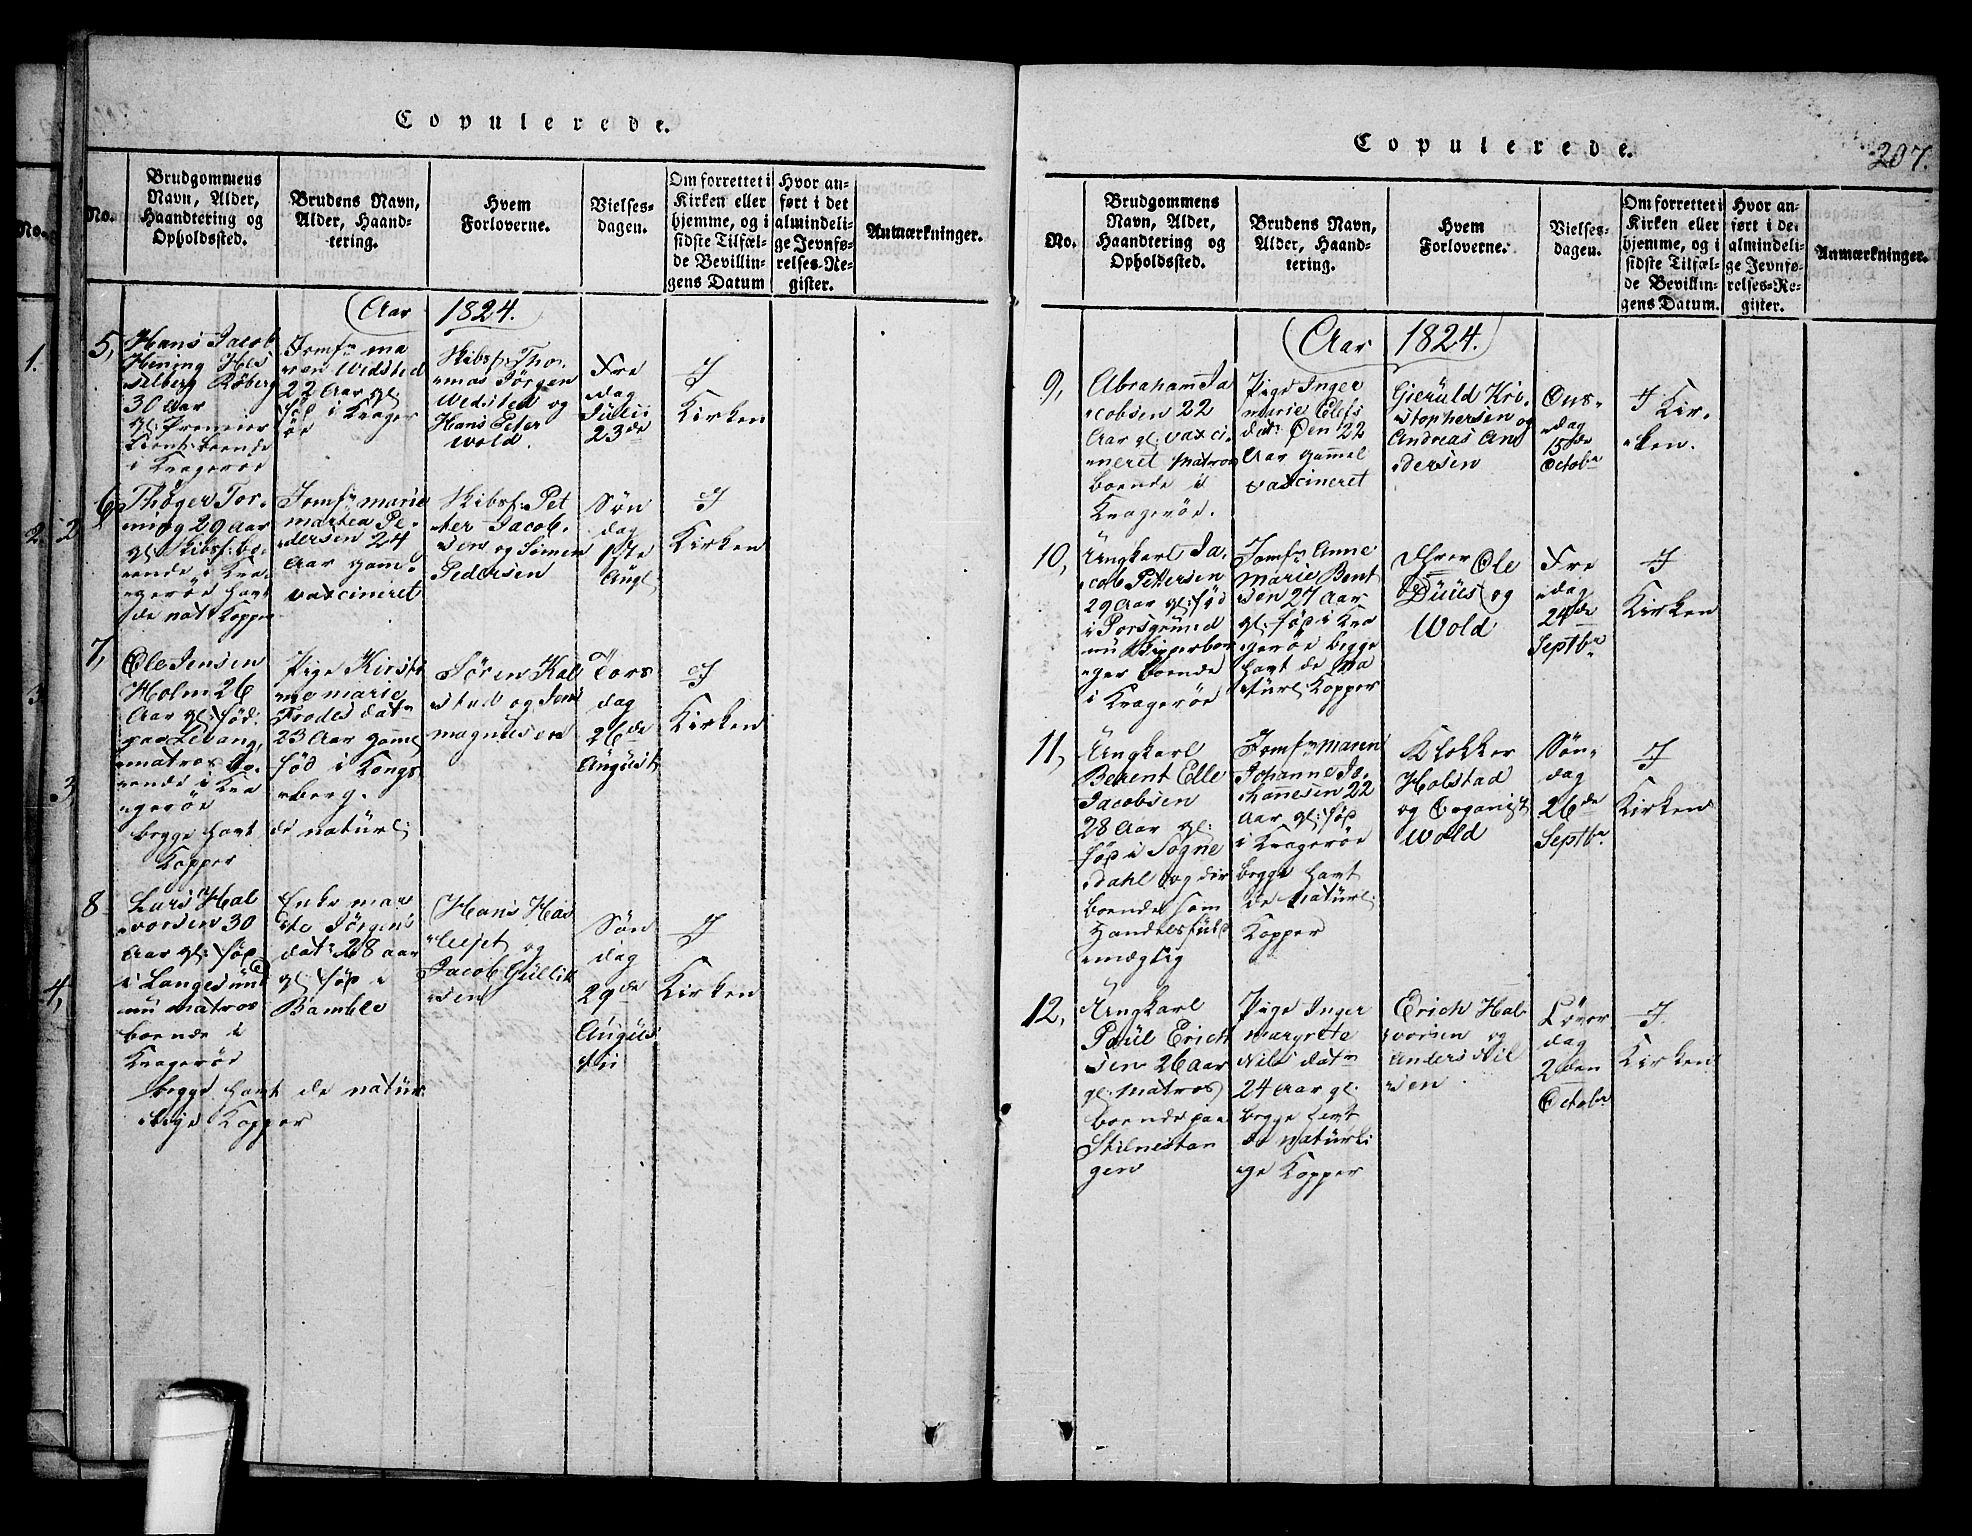 Copulerede.
No.
Brudgommens
Navn, Alder,
Haandtering og
Opholdssted.
Brudens Navn,
Alder, Haand-
tering.
Hvem
Forloverne.
Vielses-
dagen.
Om forrettet i
Kirken eller
hjemme, og i
sidste Tilfæl-
de Bevillin-
gens Datum
Hvor an-
ført i det
almindeli-
ge Jevnfø-
relses-Re-
gister.
Anmærkninger.
Aar 1824.
5,
Hans Jacob
Hening Hes
selberg Röberg
30 aar
gl: Premier
Lieut: boende
i Krageröe
Jomfr ma
ren Widsted
22 Aar gl
fød i Krager
öe
Skibsf: Tho-
mas Jörgen
Wedsted og
Hans Peter
Wold.
Fre
dag
Julii
23de
I
Kirken
6,
Thöger Tor-
29 Aar
gl: Skibsf: bo-
ende i Kra-
geröe havt
de nat Kopper
Jomfr marie
martea Pe-
dersen 24
Aar gam-
vaxcineret
Skibsf: Pet
ter Jacob-
sen og Simen
Pedersen
Søn
dag
1ste
Augl
I
Kirken
7,
Ole Jensen
Holm 26
Aar gl: fød:
paa Levang,
matros bo-
ende i Kra
geröe
begge havt
Kopper
Pige Kirsti-
ne marie
Frodes datr
23 Aar gamel
fød i Kongs
berg.
de natürl:
Sören Kal
stad og Jens
magnusen
Tors
dag
26de
Augüst
I
Kirken
8
Lars Hal
vorsen 30
Aar gl: fød
i Langesünd
nu matros
boende i
Krageröe
begge havt de natür
lige Kopper
Enke mar
te Jörgens
datr 28 aar
gl: fød i
Bamble
Hans Has
og
Jacob Güllik
sen
Søn
dag
29de
Augüs
tii
I
Kirken
Copulerede.
207.
No.
Brudgommens
Navn, Alder,
Haandtering og
Opholdssted.
Brudens Navn,
Alder, Haand-
tering.
Hvem
Forloverne.
Vielses-
dagen.
Om forrettet i
Kirken eller
hjemme, og i
sidste Tilfæl-
de Bevillin-
gens Datum.
Hvor an-
ført i det
almindeli-
ge Jevnfø-
relses-Re-
gister.
Anmærkninger.
Aar 1824.
9,
Abraham Ja
cobsen 22
Aar gl: vaxci-
neret Matros
boende i
Kragerøe.
Pige Inger
marie Olefs
datr Øen 22
Aar gammel
vaxcineret
Gieruld Kri-
stophersen og
Andreas An
dersen
Ons-
dag
15de
Octobr
I Kir-
ken.
10,
Ungkarl Ja-
cob Pettersen
29 Aar gl: fød
i Porsgrund
nu Skipperbor
ger boende
i Kragerøe
Jomfr Anne
Marie Bent
sen 27 Aar
gl: fød i Kra
geröe begge
havt de na
türl: Kopper
Hrer Ole
Düüs og
Wold
Fre
dag
24de
Septbr
I
Kirken
11,
Ungkarl
Berent Elle
Jacobsen
28 Aar gl:
fød i Sogne
dahl og der
boende som
Handelsfüld
mægtig
Jomfr Maren
Johanne Jo-
hannesen 22
Aar gl: fød
i Kragerøe
begge havt
de natürl:
Kopper
Klokker
Holstad
og Organist
Wold
Søn-
dag
26de
Septbr
I
Kirken
12,
Ungkarl
Paül Erich
sen 26 aar
gl: Matros
boende paa
Stilnestan
gen
Pige Inger
margrete
Nils datr
24 Aar gl:
begge havt
de natürli
ge Kopper
Erich Hal
vorsen og
Anders Nil
sen
Löver
dag
2den
Octobr
I
Kirken
No.
1.
2.
2
3
3,
4,